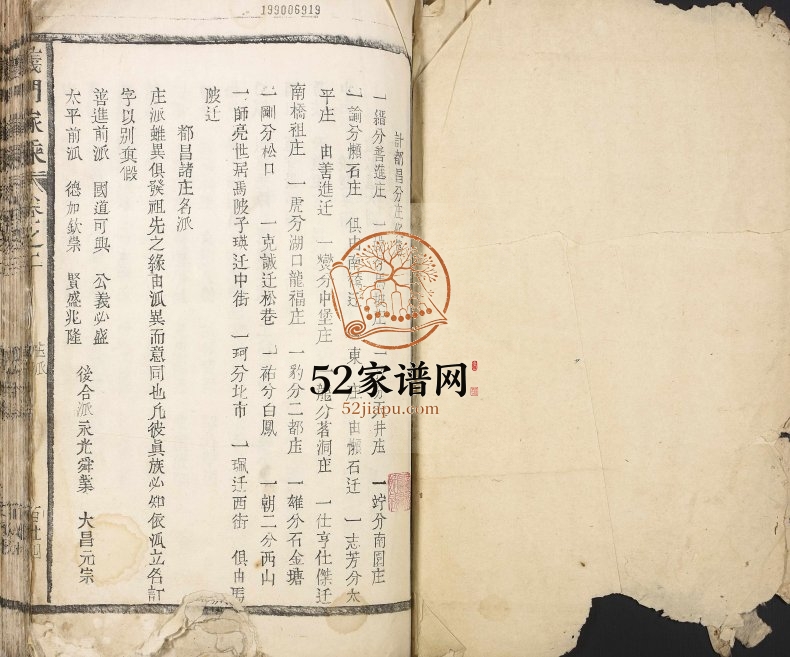 199006919
計都昌分庄
一縉分善進庄 一 分馬陂庄 一 井庄 一竚分南園庄
一諭分懶石庄 俱由南 迁 東 庄由懶石迁 一志芳分太
平庄 由善進迁 一爕分中堡庄 一龍分茗洞庄 一仕亨仕傑迁
南橋祖庄 一虎分湖口龍福庄 一豹分二都庄 一雄分石金塘
一剛分松口 一克誠迁松巷 一祐分白鳳 一朝二分西山
一師亮世居馬陂子瑛迁中街 一珂分北市 一珮迁西街 俱由馬
陂迁
都昌諸庄名派
庄派雖異俱發祖先之緣由派異而意同也凢彼眞族必如依派立各訂
字以别眞假
善進前派 國道可興 公義必盛 後合派永光舜業 大昌元宗
太平前派 德加欽崇 賢盛兆隆
義門家乘 卷之二
庄派
52家谱网
52jiapu.com